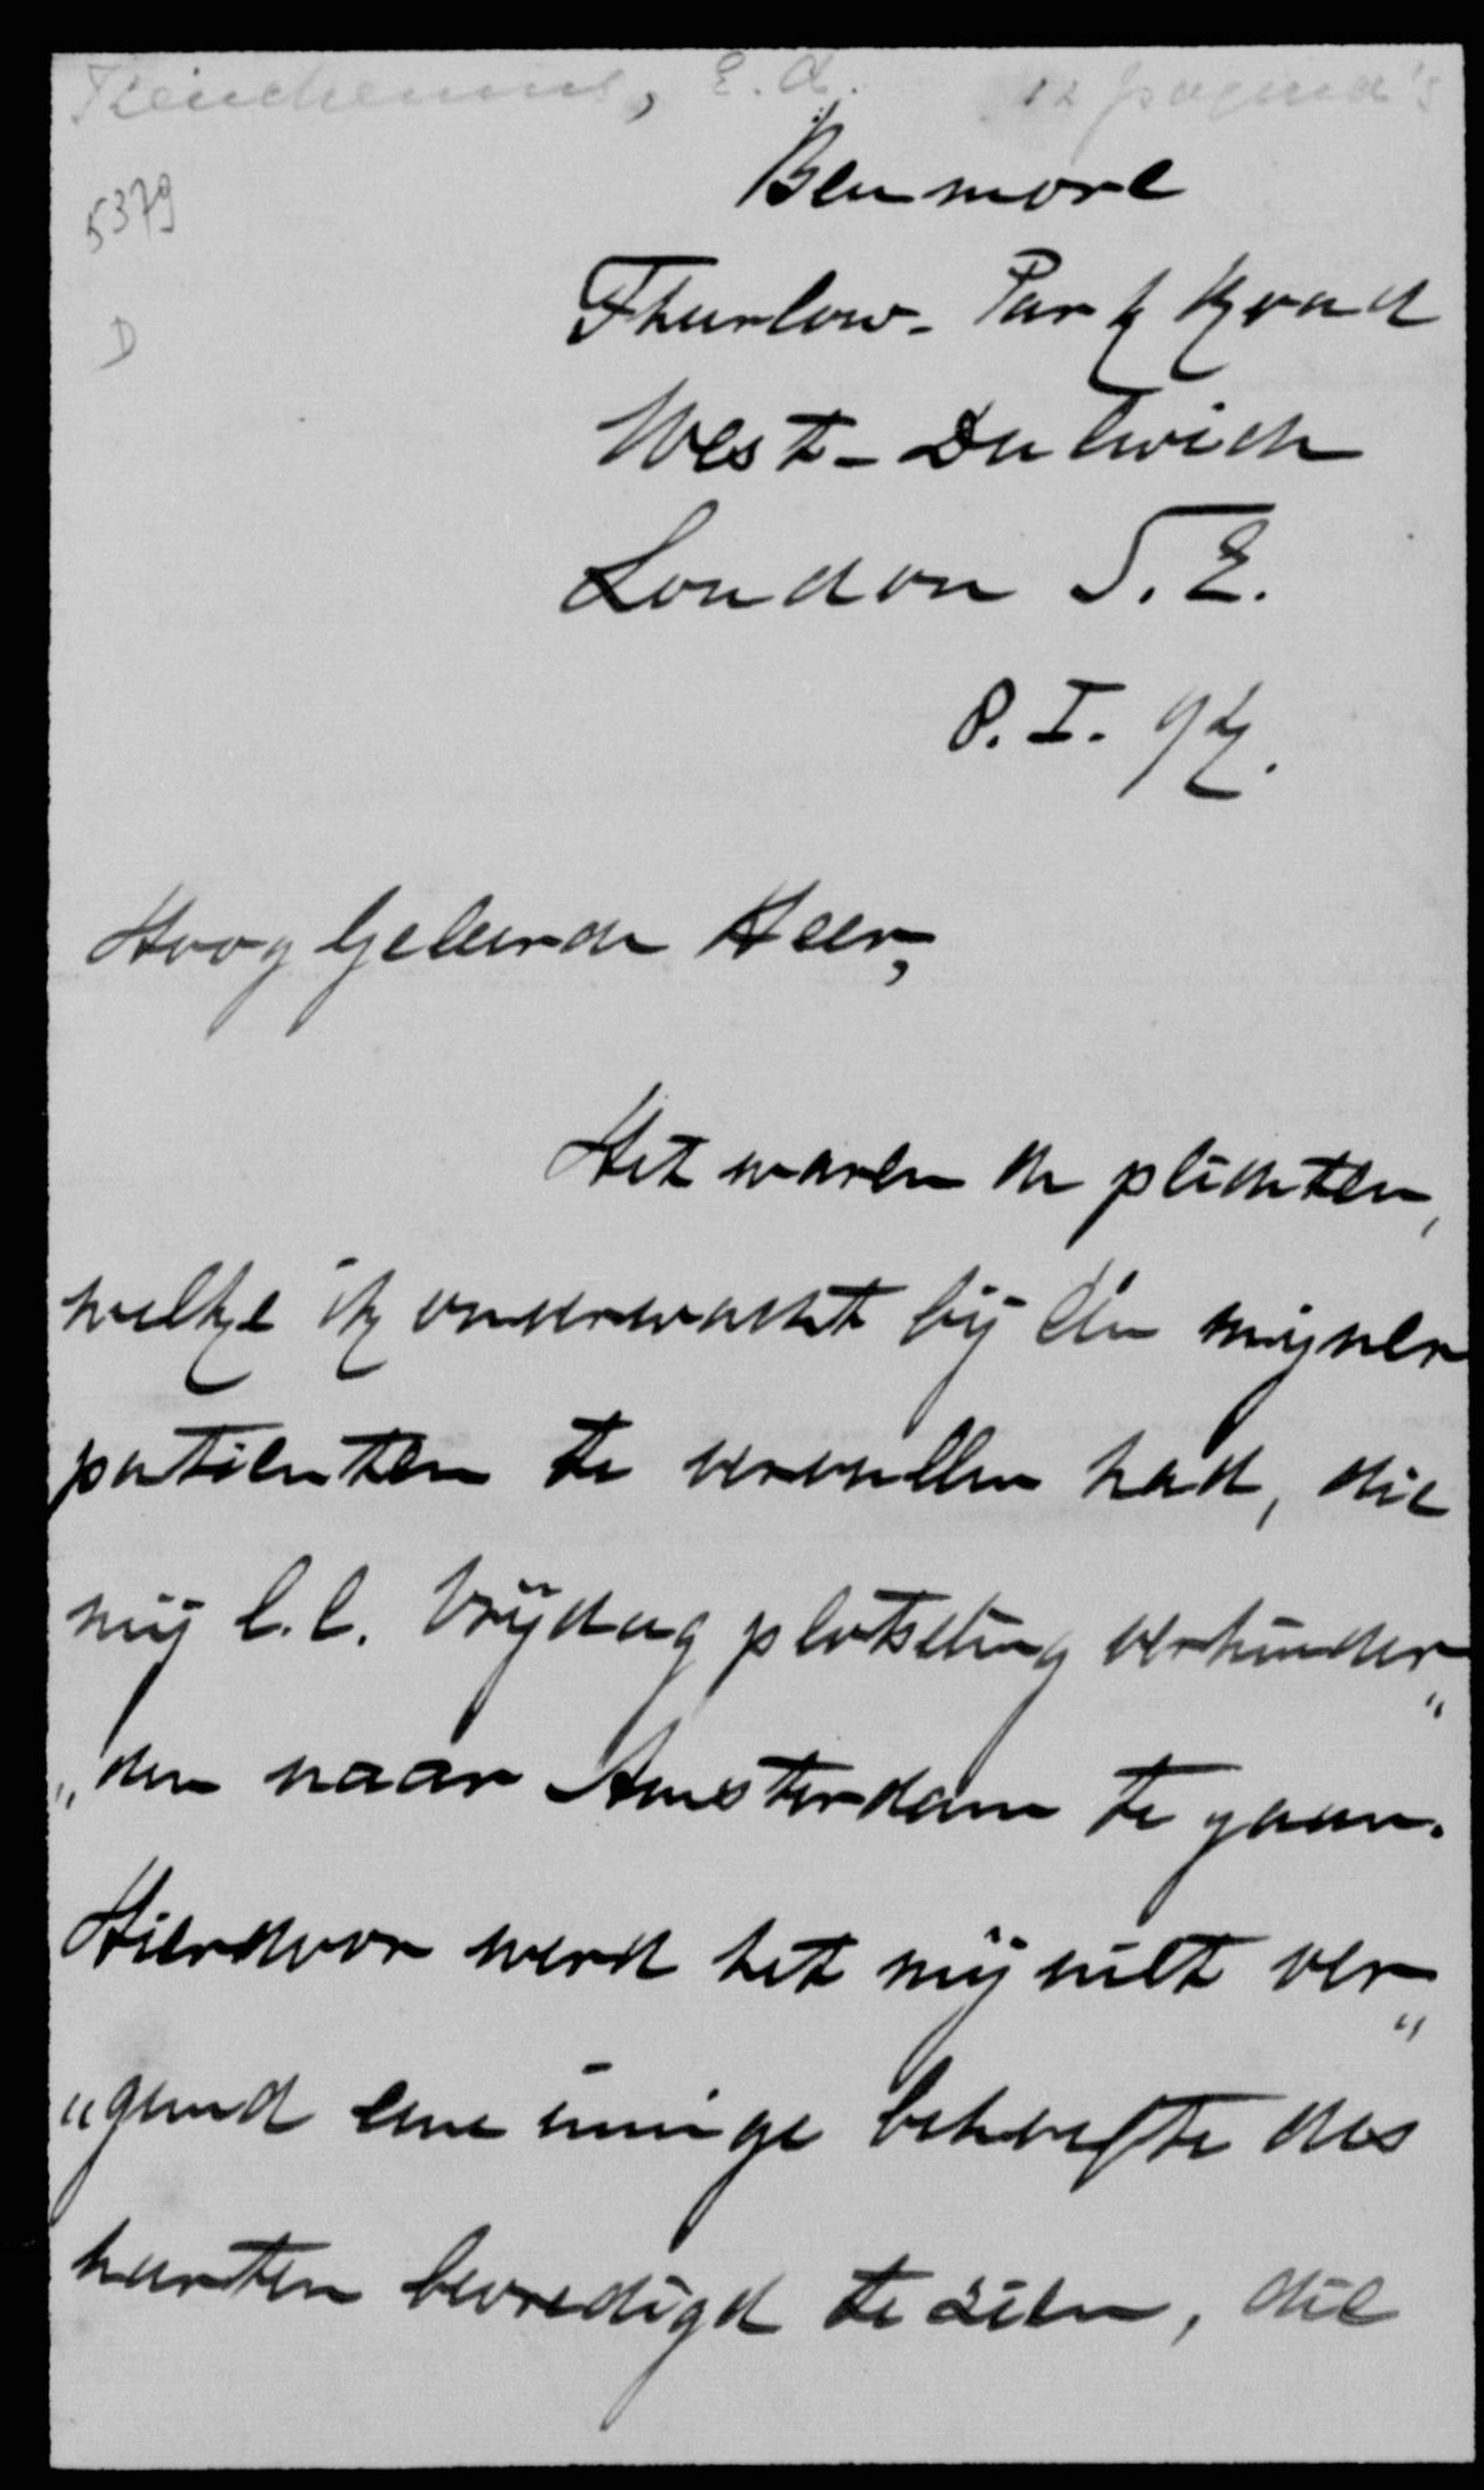 Keuchenius, E. A. 12 pagina's
5379
D
Benmore
Thurlow-Park Road
West-Dulwich
London S.E.
8. I. 94.
Hoog Geleerde Heer,
Het waren de plichten,
welke ik onverwacht bij één mijner
patienten te vervullen had, die
mij l.l. Vrijdag plotseling verhinder„
„den naar Amsterdam te gaan.
Hierdoor werd het mij niet ver„
„gund eene innige behoefte des
harten bevredigd te zien, die